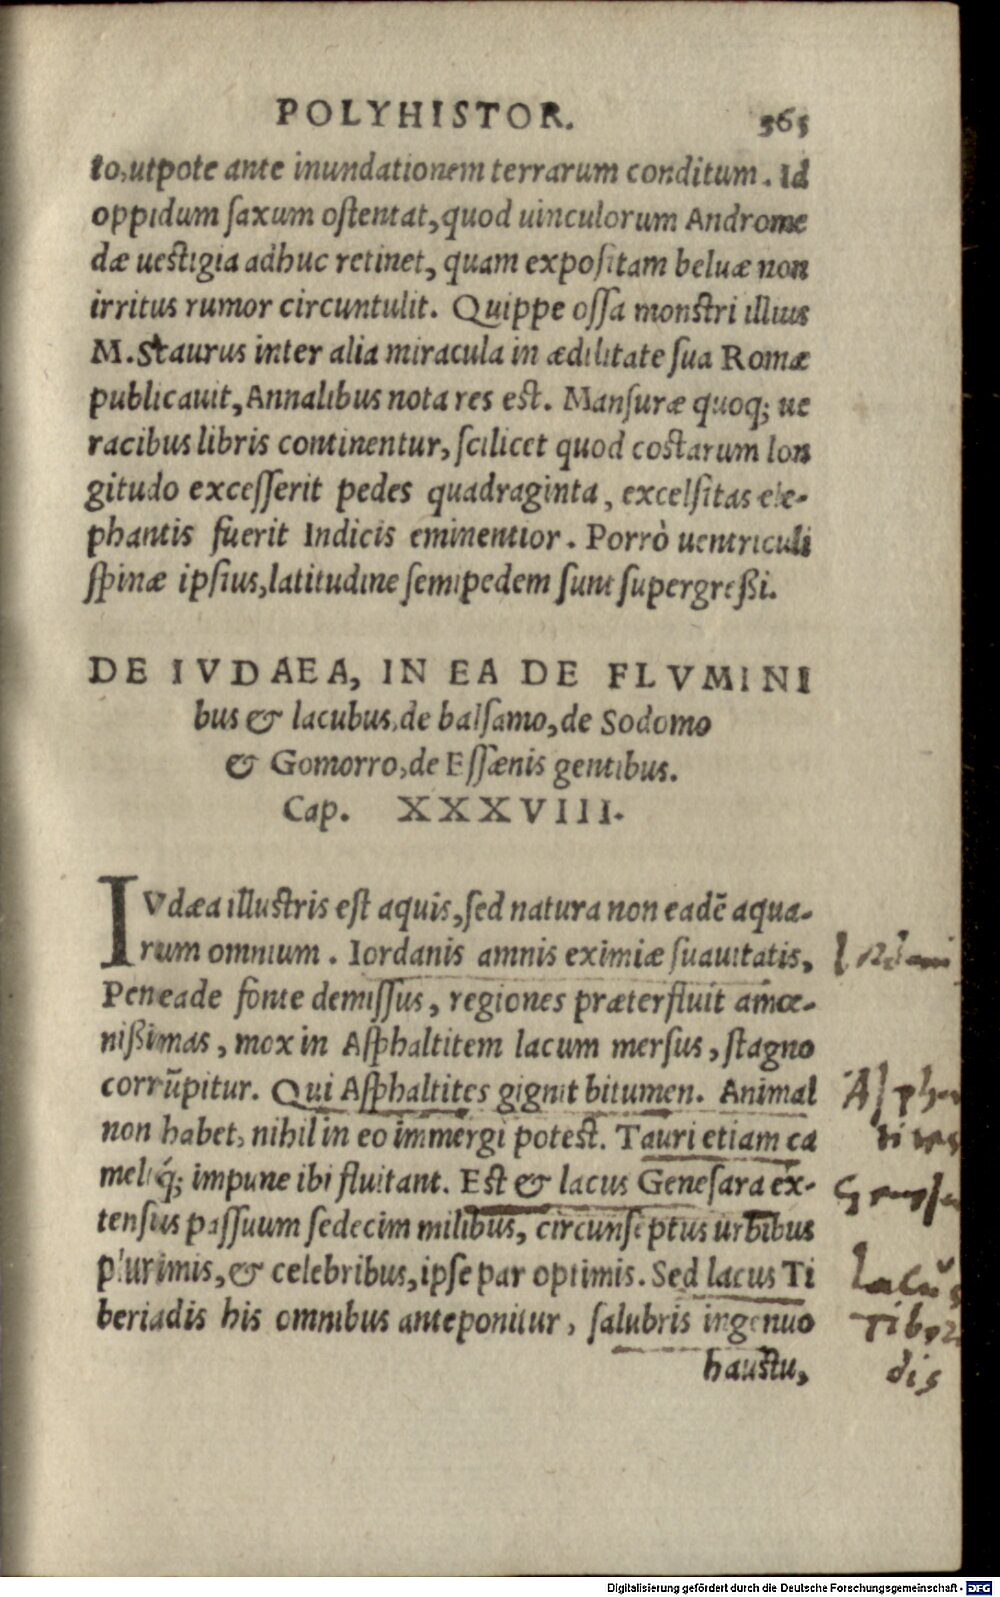 POLYHISTOR. 365
to, utpote ante inundationem terrarum conditum. Id
oppidum saxum ostentat, quod uinculorum Androme
dæ uestigia adhuc retinet, quam expositam beluæ non
irritus rumor circuntulit. Quippe ossa monstri illius
M. Staurus inter alia miracula in ædilitate sua Romæ
publicauit, Annalibus nota res est. Mansuræ quoq; ue
racibus libris continentur, scilicet quod costarum lon
gitudo excesserit pedes quadraginta, excelsitas ele-
phantis fuerit Indicis eminentior. Porrò uentriculi
spinæ ipsius, latitudine semipedem sunt supergreßi.
DE IVDAEA, IN EA DE FLVMINI
bus & lacubus, de balsamo, de Sodomo
& Gomorro, de Essænis gentibus.
Cap. XXXVIII.
IVdæa illustris est aquis, sed natura non eadē aqua-
rum omnium. Iordanis amnis eximiæ suauitatis,
Peneade fonte demissus, regiones præterfluit amœ-
nißimas, mox in Asphaltitem lacum mersus, stagno
corrūpitur. Qui Asphaltites gignit bitumen. Animal
non habet, nihil in eo immergi potest. Tauri etiam ca
meliq́; impune ibi fluitant. Est & lacus Genesara ex-
tensus passuum sedecim milibus, circunseptus urbibus
plurimis, & celebribus, ipse par optimis. Sed lacus Ti
beriadis his omnibus anteponitur, salubris ingenuo
haustu,
lacus
dis
Digitalisierung gefördert durch die Deutsche Forschungsgemeinschaft - DFG